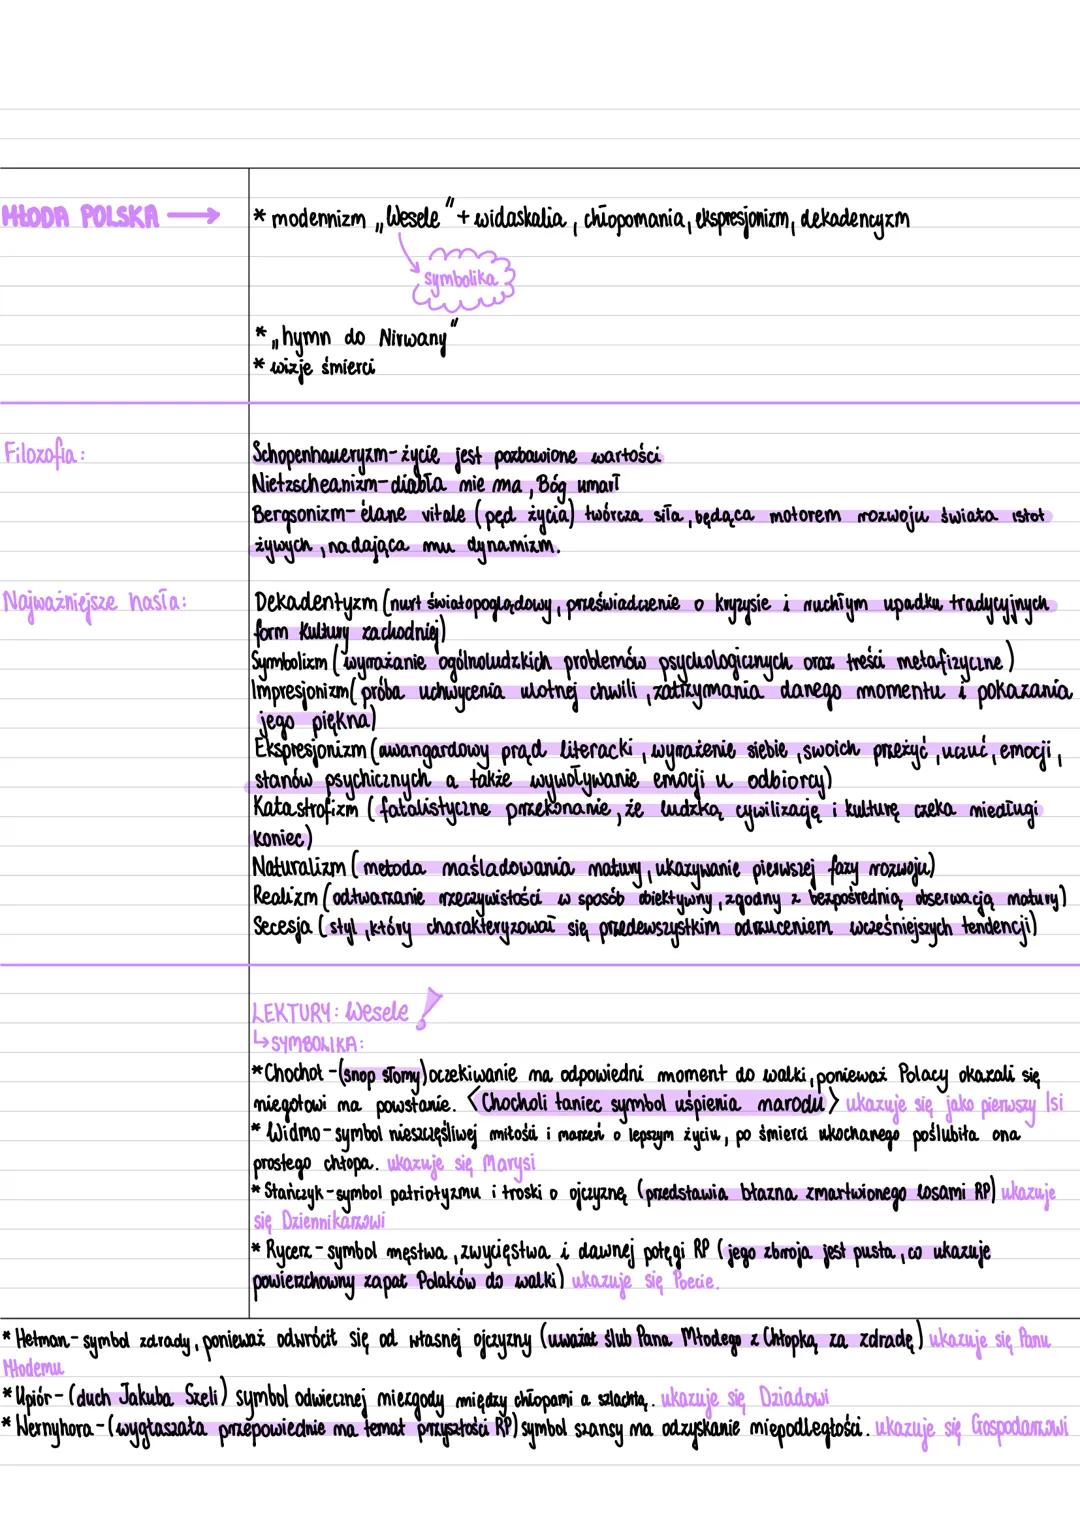 MŁODA POLSKA → * modernizm „Wesele" + widaskalia, chłopomania, ekspresjonizm, dekadencyzm
symbolika
* „hymn do Nirwany"
* wizje śmierci
Filozofia: Schopenhaueryzm - życie jest pozbawione wartości
Nietzscheanizm - diabła nie ma, Bóg umarł
Bergsonizm - élane vitale (pęd życia) twórcza siła, będąca motorem rozwoju świata istot
żywych, nadająca mu dynamizm.
Najważniejsze hasła: Dekadentyzm (nurt światopoglądowy, przeświadczenie o kryzysie i ruchłym upadku tradycyjnych
form kultury zachodniej)
Symbolizm (wyrażanie ogólnoludzkich problemów psychologicznych oraz treści metafizyczne)
Impresjonizm (próba uchwycenia ulotnej chwili, zatrzymania danego momentu i pokazania
jego piękna)
Ekspresjonizm (awangardowy prąd literacki, wyrażenie siebie, swoich przeżyć, uczuć, emocji,
stanów psychicznych a także wywoływanie emocji u odbiorcy)
Katastrofizm (fatalistyczne przekonanie, że ludzką cywilizację i kulturę czeka niedługi
koniec)
Naturalizm (metoda naśladowania natury, ukazywanie pierwszej fazy rozwoju)
Realizm (odtwarzanie rzeczywistości w sposób obiektywny, zgodny z bezpośrednią obserwacją natury)
Secesja (styl, który charakteryzował się przedewszystkim odrzuceniem wcześniejszych tendencji)
LEKTURY: Wesele !
↳ SYMBOLIKA:
* Chochoł - (snop słomy) oczekiwanie na odpowiedni moment do walki, ponieważ Polacy okazali się
niegotowi na powstanie. <Chocholi taniec symbol uśpienia narodu> ukazuje się jako pierwszy Isi
* Widmo - symbol nieszczęśliwej miłości i marzeń o lepszym życiu, po śmierci ukochanego poślubiła ona
prostego chłopa. ukazuje się Marysi
* Stańczyk - symbol patriotyzmu i troski o ojczyznę (przedstawia błazna zmartwionego losami RP) ukazuje
się Dziennikarzowi
* Rycerz - symbol męstwa, zwycięstwa i dawnej potęgi RP (jego zbroja jest pusta, co ukazuje
powierzchowny zapał Polaków do walki) ukazuje się Poecie.
* Hetman - symbol zdrady, ponieważ odwrócił się od własnej ojczyzny (uważał ślub Pana Młodego z Chłopką za zdradę) ukazuje się Panu
Młodemu
* Upiór - (duch Jakuba Szeli) symbol odwiecznej niezgody między chłopami a szlachtą. ukazuje się Dziadowi
* Wernyhora - (wygłaszała przepowiednie na temat przyszłości RP) symbol szansy na odzyskanie niepodległości. ukazuje się Gospodarzowi